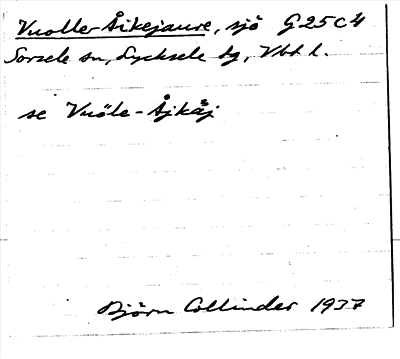 Vuoller-Åikejaure, sjö G 25 C 4
Sorsele sn, Lycksele tg, Vbt. l.
se Vuöle-Åjkåj
Björn Collinder 1937